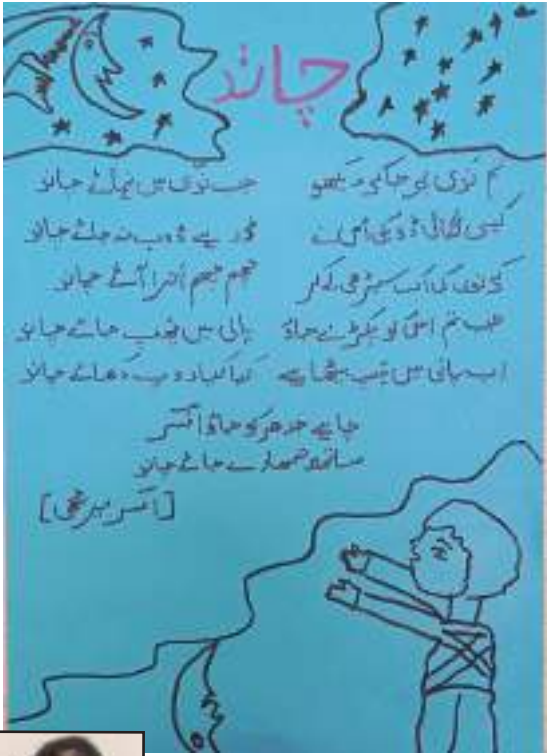 چاند
تم ندی پر جا کر دیکھو
جب ندی میں نہائے چاند
کیسی لگائی ڈبکی اس نے
ڈر ہے ڈوب نہ جائے چاند
کرنوں کی اک سیڑھی لے کر
چھم چھم اترا آئے چاند
جب تم اسے پکڑنے جاؤ
پانی میں چھپ جائے چاند
اب پانی میں چپ بیٹھا ہے
کیا کیا روپ دکھائے چاند
چاہے جدھر کو جاؤ افسر
ساتھ تمہارے جائے چاند
[افسر میرٹھی]